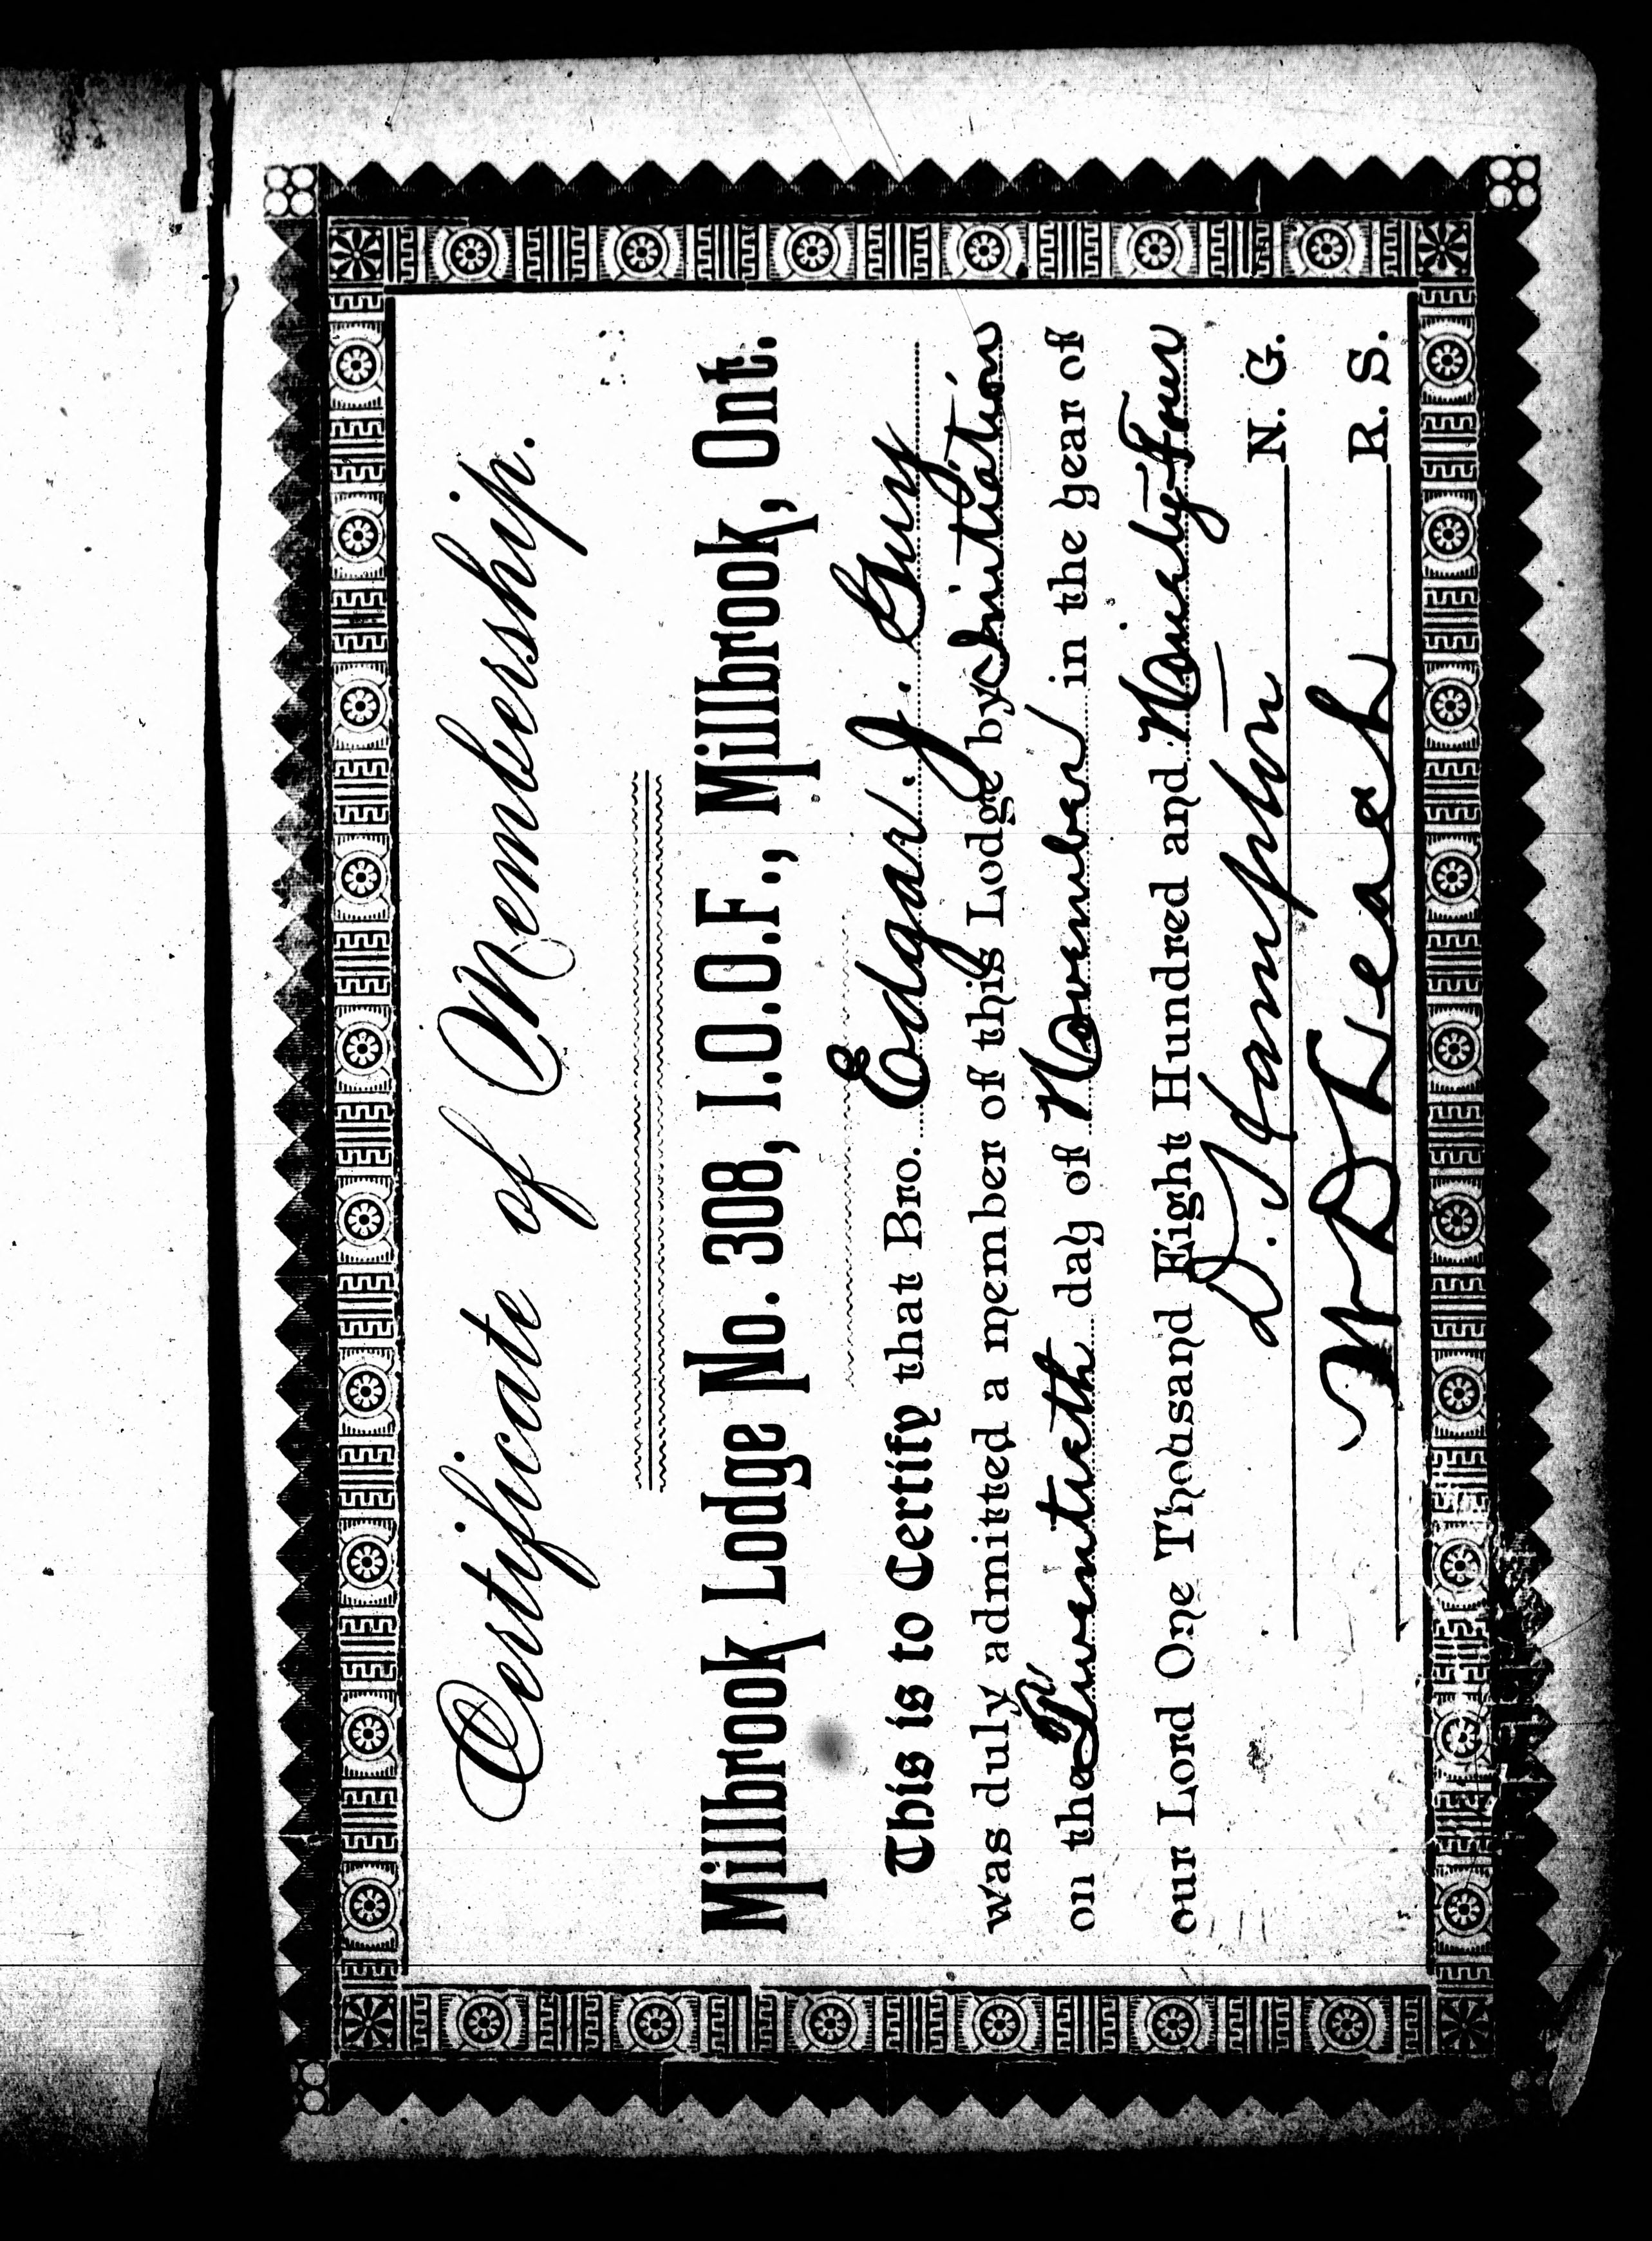 Certificate of Membership.
Millbrook Lodge No. 308, I.O.O.F., Millbrook, Ont.
This is to Certify that Bro. Edgar. J. Guy
was duly admitted a member of this Lodge by Initiation
on the Twentieth day of November in the year of
our Lord One Thousand Eight Hundred and Ninety-Four
D. Hampton N. G.
W D Leach R. S.